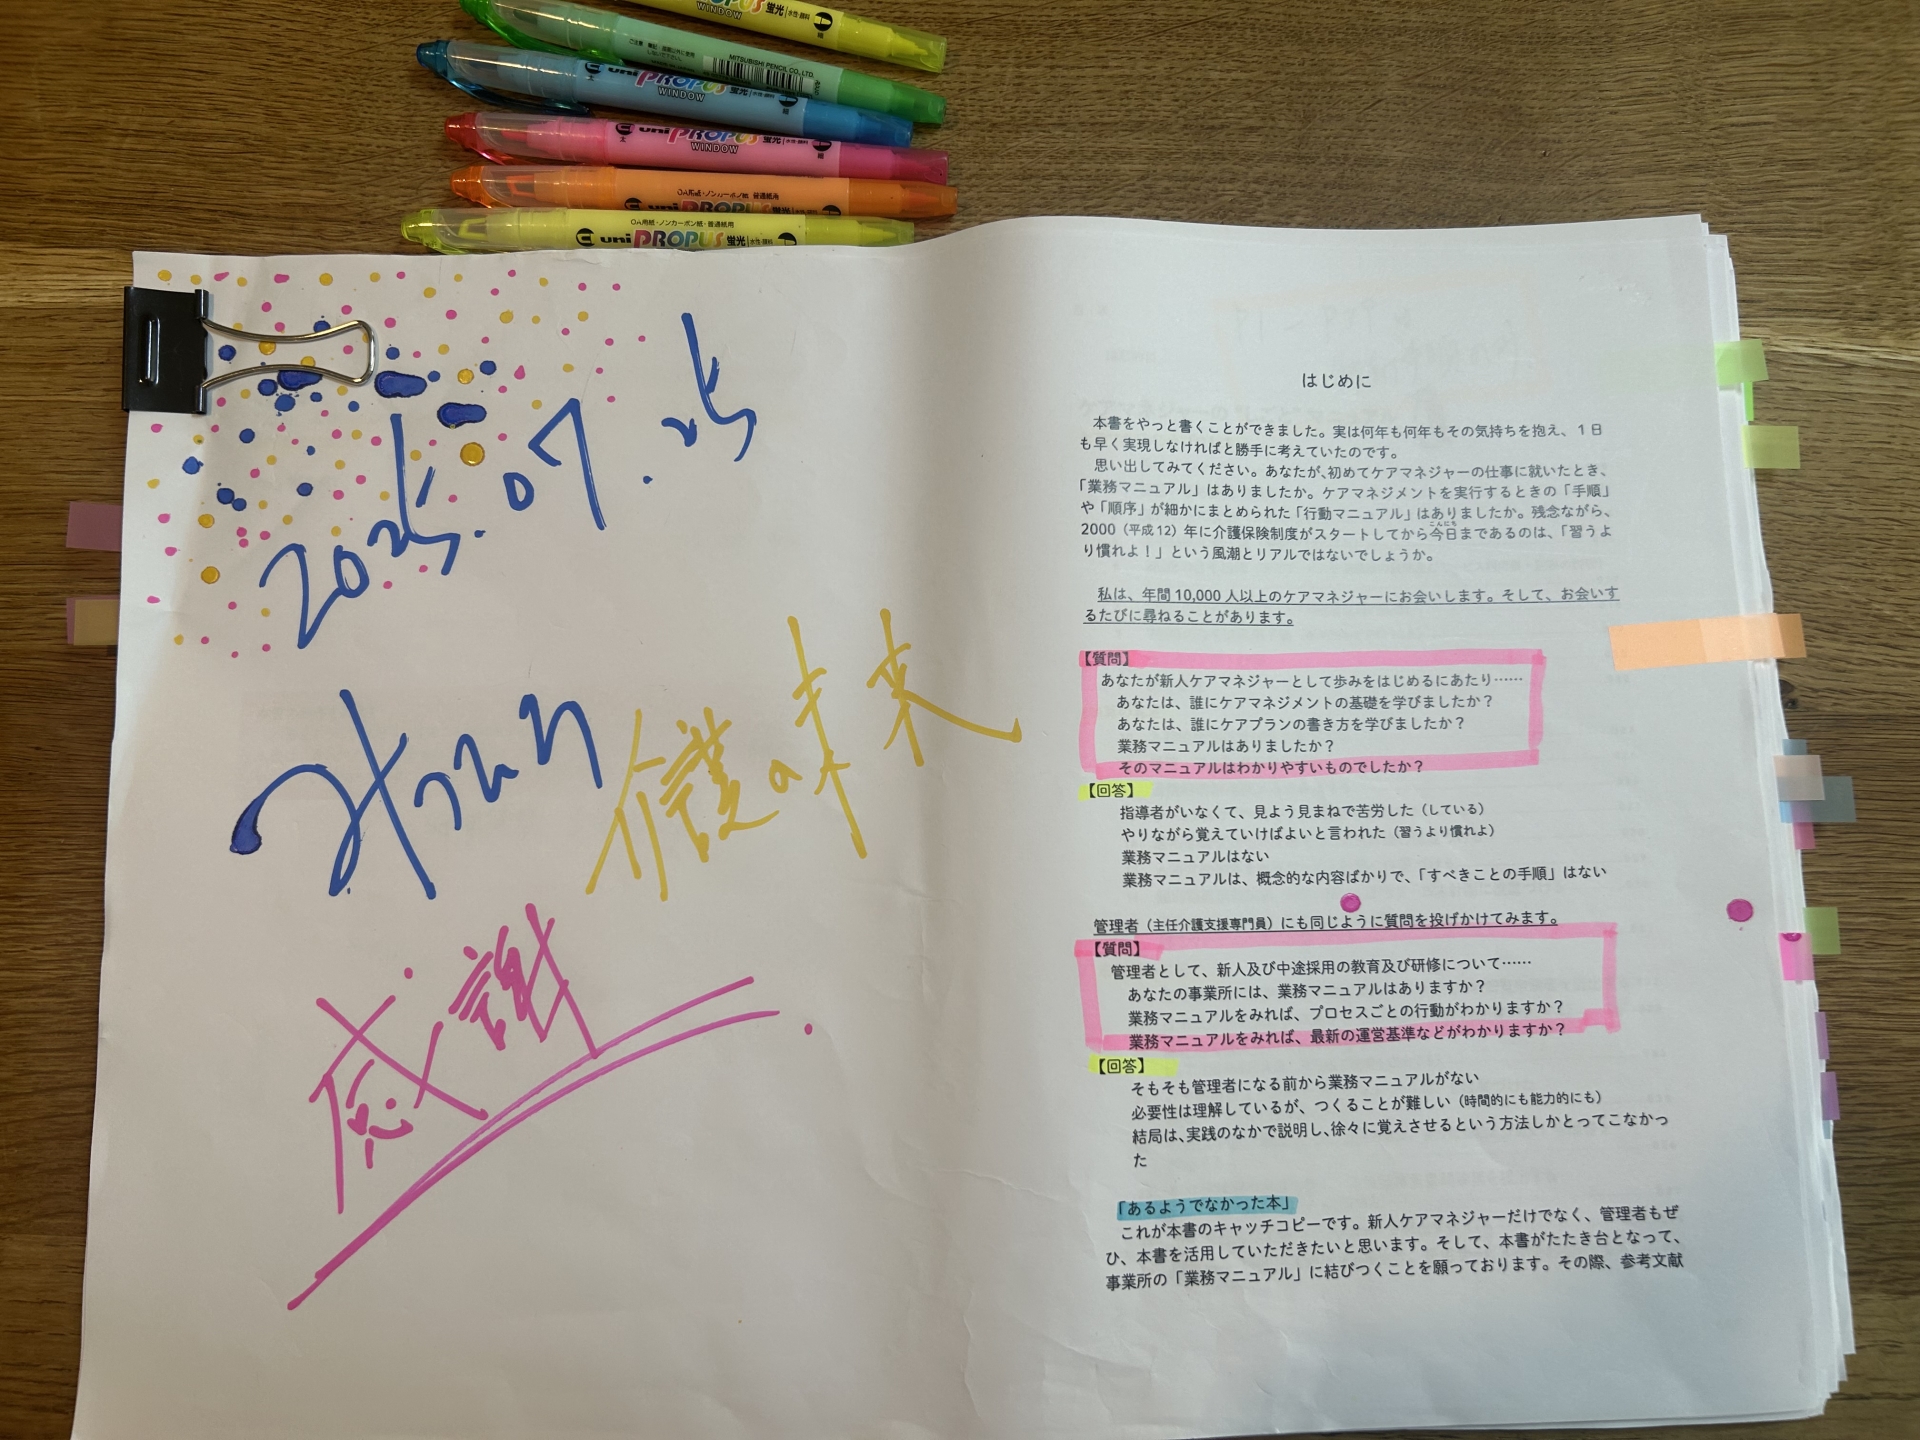 WINDOW
MITSUBISHI PENCIL CO., LTD.
uni PROPUS 蛍光
WINDOW
uni PROPUS 蛍光
WINDOW
OA用紙・ノンカーボン紙・普通紙用
uni PROPUS
OA用紙・ノンカーボン紙・普通紙用
uni PROPUS 蛍光 水性・顔料
2025.07.25
介護の未来
感謝
はじめに
本書をやっと書くことができました。実は何年も何年もその気持ちを抱え、1日
も早く実現しなければと勝手に考えていたのです。
思い出してみてください。あなたが、初めてケアマネジャーの仕事に就いたとき、
「業務マニュアル」はありましたか。ケアマネジメントを実行するときの「手順」
や「順序」が細かにまとめられた「行動マニュアル」はありましたか。残念ながら、
2000（平成12）年に介護保険制度がスタートしてから今日まであるのは、「習うよ
り慣れよ！」という風潮とリアルではないでしょうか。
私は、年間10,000人以上のケアマネジャーにお会いします。そして、お会いす
るたびに尋ねることがあります。
【質問】
あなたが新人ケアマネジャーとして歩みをはじめるにあたり……
あなたは、誰にケアマネジメントの基礎を学びましたか？
あなたは、誰にケアプランの書き方を学びましたか？
業務マニュアルはありましたか？
そのマニュアルはわかりやすいものでしたか？
【回答】
指導者がいなくて、見よう見まねで苦労した（している）
やりながら覚えていけばよいと言われた（習うより慣れよ）
業務マニュアルはない
業務マニュアルは、概念的な内容ばかりで、「すべきことの手順」はない
管理者（主任介護支援専門員）にも同じように質問を投げかけてみます。
【質問】
管理者として、新人及び中途採用の教育及び研修について……
あなたの事業所には、業務マニュアルはありますか？
業務マニュアルをみれば、プロセスごとの行動がわかりますか？
業務マニュアルをみれば、最新の運営基準などがわかりますか？
【回答】
そもそも管理者になる前から業務マニュアルがない
必要性は理解しているが、つくることが難しい（時間的にも能力的にも）
結局は、実践のなかで説明し、徐々に覚えさせるという方法しかとってこなかっ
た
「あるようでなかった本」
これが本書のキャッチコピーです。新人ケアマネジャーだけでなく、管理者もぜ
ひ、本書を活用していただきたいと思います。そして、本書がたたき台となって、
事業所の「業務マニュアル」に結びつくことを願っております。その際、参考文献